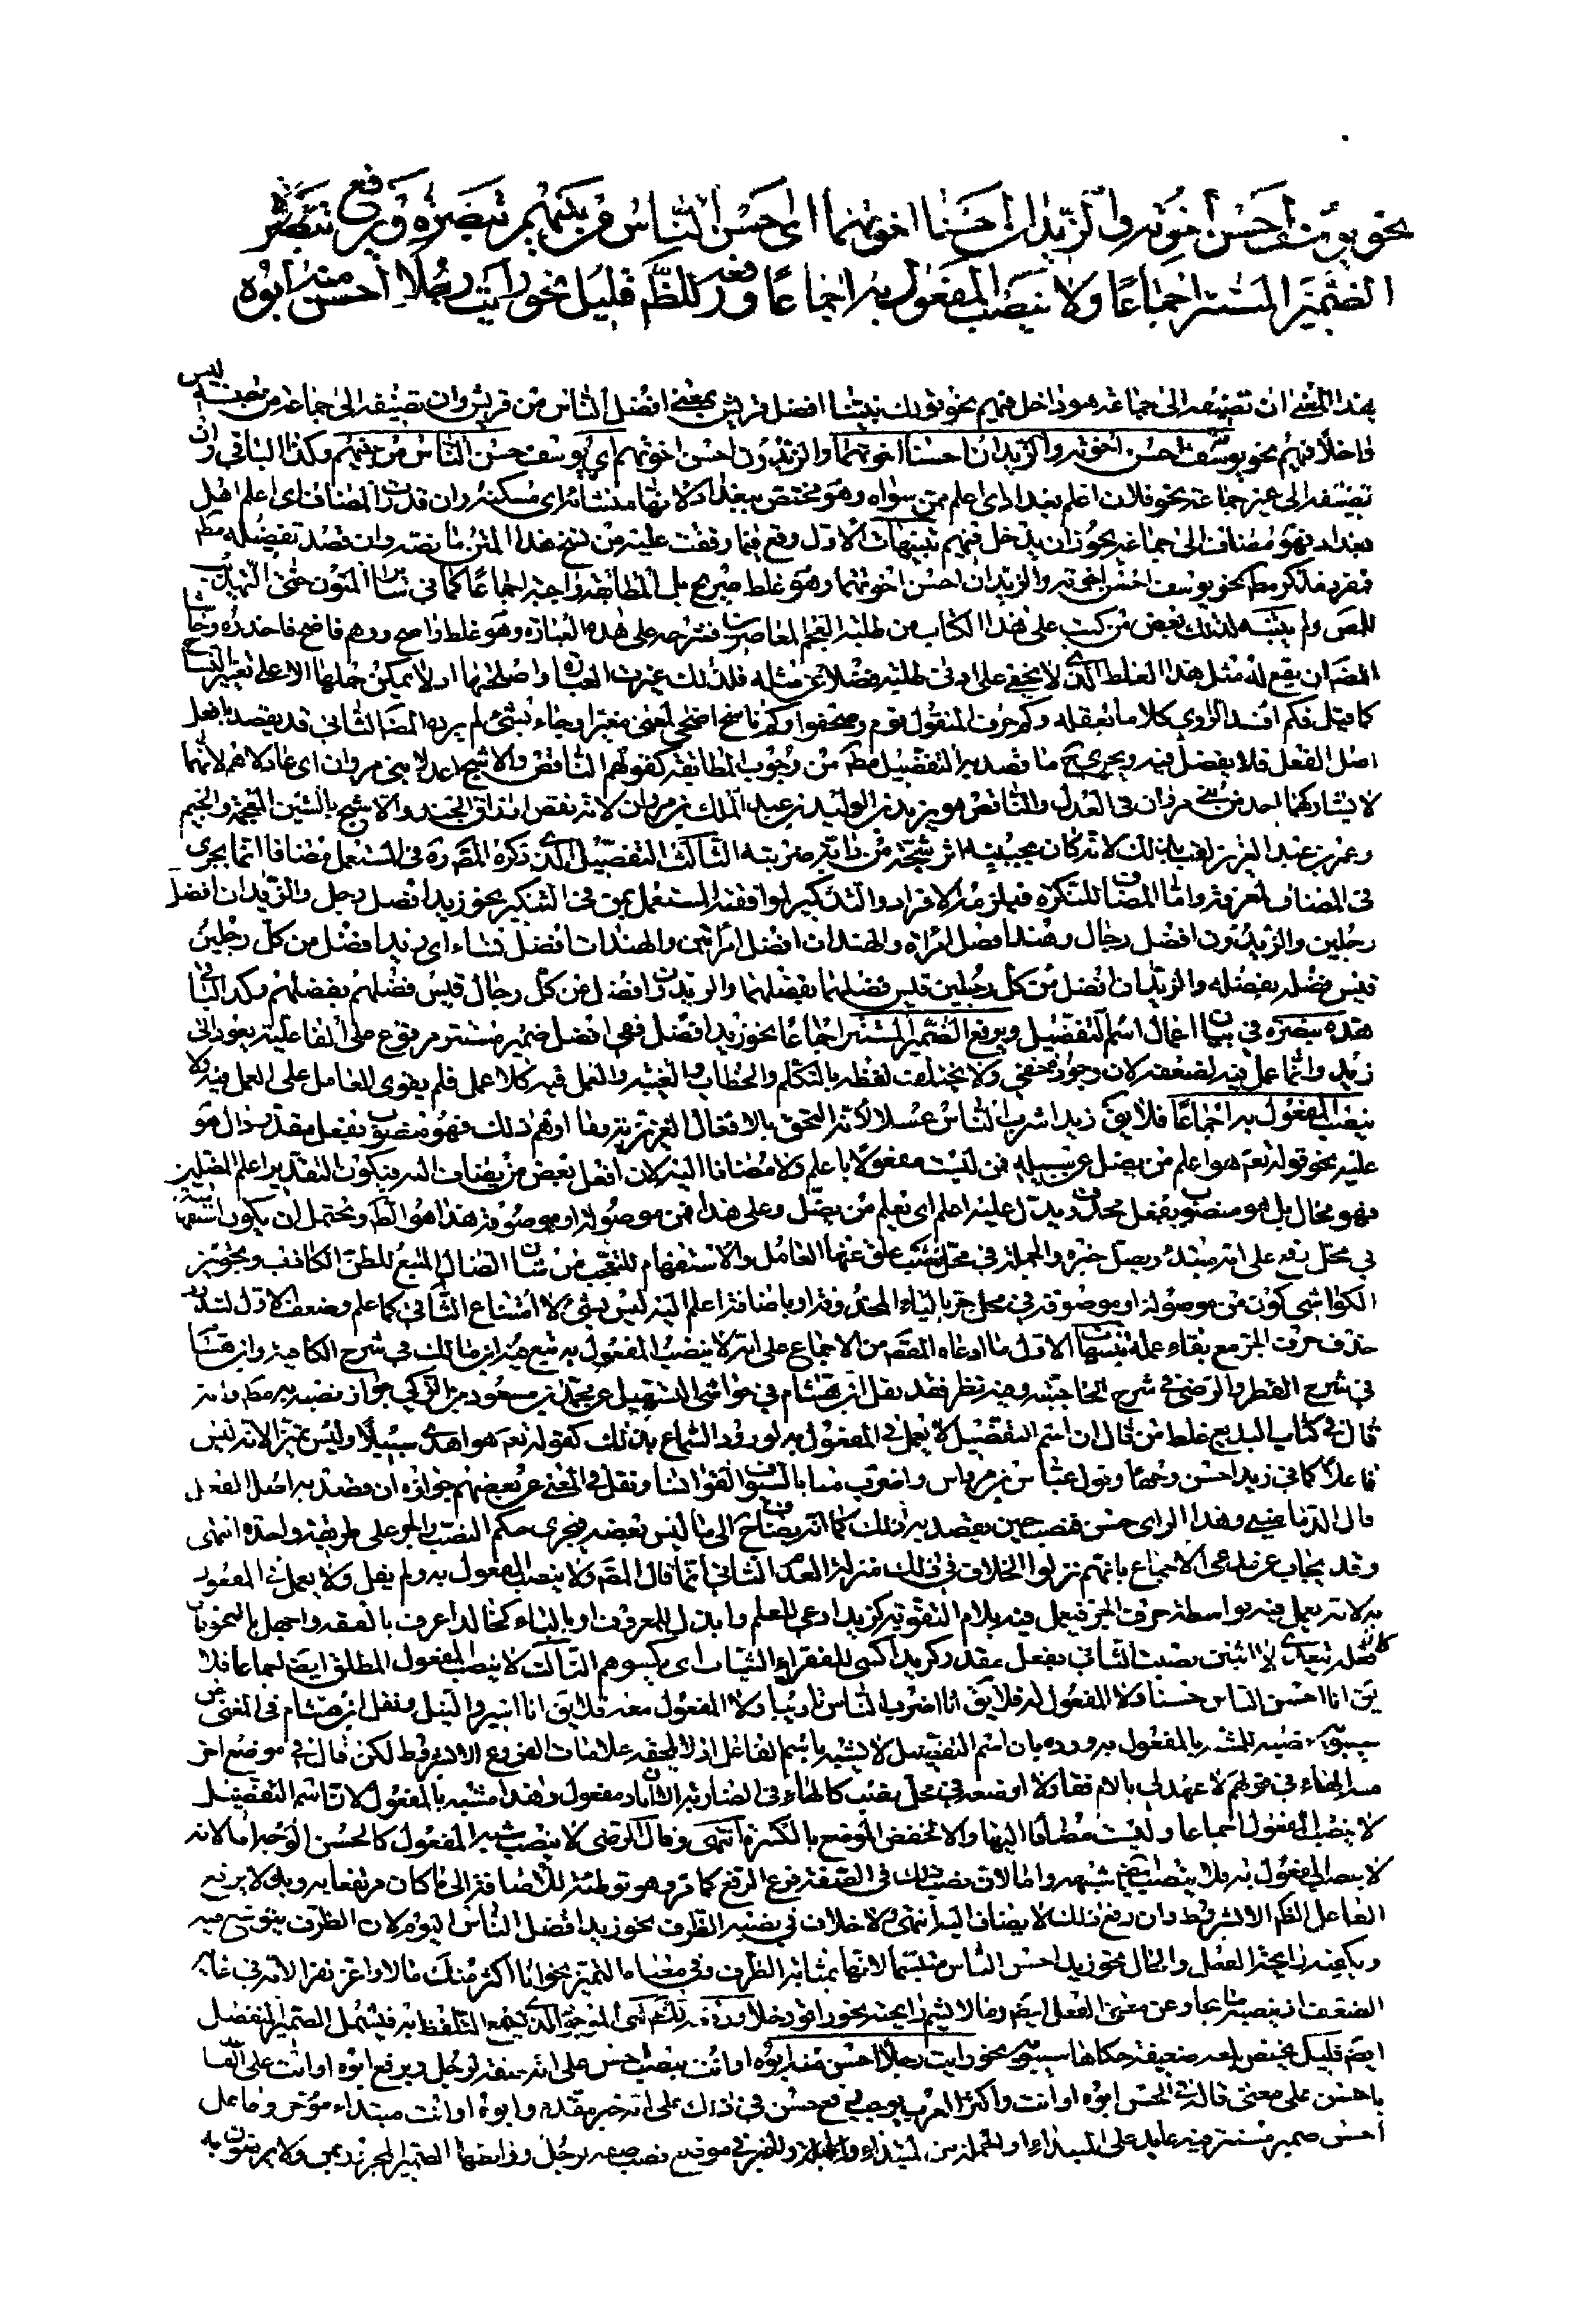 نحو يوسف احسن اخوته والزيدان احسنا اخوتهما اى احسن الناس من بينهم تبصره ويرفع تبصره
الضمير المستتر اجماعًا ولا ينصب المفعول به اجماعًا ورفعه للظم قليل نحو رايت رجلا احسن منه ابوه
بهذا المعنى ان تضيفه الى جماعة هو داخل فيهم نحو قولك نبينا افضل قريش بمعنى افضل الناس من قريش وان تضيفه الى جماعة من جنسه ليس
داخلا فيهم نحو يوسف احسن اخوته والزيدان احسنا اخوتهما والزيدون احسن اخوتهم اى يوسف احسن الناس من بينهم وكذا الباقي وان
تضيفه الى غير جماعة نحو فلان اعلم بغداد اى اعلم ممن سواه وهو مختص ببغداد لانها منشائه او مسكنه وان قدرت المضاف اى اعلم اهل
بغداد فهو مضاف الى جماعة يجوز ان يدخل فيهم تنبيهات الاول وقع فيما وقفت عليه من نسخ هذا المتن ما نصه وان قصد تفضيله مط
فمفرد مذكر مط نحو يوسف احسن اخوته والزيدان احسن اخوتهما وهو غلط صريح بل المطابقة واجبة اجماعًا كما في ساير المتون حتى التهذيب
للمص ولم يتنبه لذلك بعض من كتب على هذا الكتاب من طلبة العجم المعاصرين فشرحه على هذه العبارة وهو غلط واضح ووهم فاضح فاحذره وحاشا
المص ان يقع له مثل هذا الغلط الذى لا يخفى على ادنى طلبته فضلا عن مثله فلذلك غيرت العبارة واصلحتها اذ لا يمكن حملها الا على تغيير النساخ
كما قيل فكم افسد الراوي كلاما بعقله وكم حرف المنقول قوم وصحفوا وكم ناسخ اضحى لمعنى مغيرا وجاء بشئ لم يرده المص الثاني قد يقصد بافعل
اصل الفعل فلا يفضل فيه ويجرى ح ما قصد به التفضيل مط من وجوب المطابقة كقولهم الناقص والاشج اعدلا بني مروان اى عادلاهم لانهما
لا يشاركهما احد من بني مروان في العدل والناقص هو يزيد بن الوليد بن عبد الملك بن مروان لانه نقص ارزاق الجند والاشج بالشين المعجمة والجيم
وعمر بن عبد العزيز لقب بذلك لانه كان بجبينه اثر شجة من دابة ضربته الثالث التفصيل الذى ذكره المص ره في المستعمل مضافا انما يجرى
في المضاف لمعرفة واما المضاف للنكرة فيلزم فيه الافراد والتذكير لموافقته المستعمل بمن في التنكير نحو زيد افضل رجل والزيدان افضل
رجلين والزيدون افضل رجال وهند افضل امراة والهندان افضل امراتين والهندات افضل نساء اى زيد افضل من كل رجلين
قيس فضله بفضله والزيدان افضل من كل رجلين قيس فضلهما بفضلهما والزيدون افضل من كل رجال قيس فضلهم بفضلهم وكذا الباقي
هذه تبصرة في بيان اعمال اسم التفضيل ويرفع الضمير المستتر اجماعًا نحو زيد افضل ففي افضل ضمير مستتر مرفوع على الفاعلية يعود الى
زيد وانما عمل فيه لضعفه لان وجوده مخفي ولا يختلف لفظه بالتكلم والخطاب والغيبة والعمل فيه كلا عمل فلم يقوى للعامل على العمل فيه ولا
ينصب المفعول به اجماعًا فلا يق زيد اشرب الناس عسلا لانه التحق بالافعال الغريزية وما اوهم ذلك فهو منصوب بفعل مقدر دال هو
عليه نحو قوله تعم هو اعلم من يضل عن سبيله فمن ليست مفعولا باعلم ولا مضافا اليه لان افعل بعض من يضاف اليه فيكون التقدير اعلم المضلين
فهو محال بل هو منصوب بفعل محذوف يدل عليه اعلم اى يعلم من يضل وعلى هذا فمن موصولة او موصوفة هذا هو الظ ويحتمل ان يكون استفهامية
في محل رفع على انه مبتدء ويضل خبره والجملة في محل نصب علق عنها العامل والاستفهام للتعجب من شان الضال المتبع للظن الكاذب وتجويز
الكواشى كون من موصولة او موصوفة في محل جر بالباء المحذوفة او باضافة اعلم اليه ليس بشئ لامتناع الثاني كما علم وضعف الاول لشذوذ
حذف حرف الجر مع بقاء عمله تنبيهات الاول ما ادعاه المص من الاجماع على انه لا ينصب المفعول به تبع فيه ابن مالك في شرح الكافية وابن هشام
في شرح القطر والرضى في شرح الحاجبية وفيه نظر فقد نقل ابن هشام في حواشى التسهيل عن محمد بن مسعود بن الزكي جواز نصبه به مط وانه
قال في كتاب البديع غلط من قال ان اسم التفضيل لا يعمل في المفعول به لورود السماع بذلك كقوله تعم هو اهدى سبيلا وليس تميزا لانه ليس
فاعلا كما في زيد احسن وجهًا وقول عباس بن مرداس واضرب منا بالسيوف القوانسا ونقل في المغنى عن بعضهم جوازه ان قصد به اصل الفعل
قال الدماميني وهذا الراى حسن فنصب حين يقصد به ذلك كما انه يضاف ح الى ما ليس بعضه فيجرى حكم النصب والجر على طريقة واحدة انتهى
وقد يجاب عن مدعى الاجماع بانهم نزلوا الخلاف في ذلك منزلة العدم الثاني انما قال المص ولا ينصب المفعول به ولم يقل ولا يعمل في المفعول
به لانه يعمل فيه بواسطة حرف الجر فيعمل فيه بلام التقوية كزيد اوعى للعلم وابذل للمعروف او بالباء كخالد اعرف بالفقه واجهل بالنحو فان
كان فعله يتعدى لاثنين نصبت الثاني بفعل مقدر كزيد اكسى للفقراء الثياب اى يكسوهم الثالث لا ينصب المفعول المطلق ايض اجماعا فلا
يق انا احسن الناس حسنا ولا المفعول له فلا يق انا اضرب الناس تاديبا ولا المفعول معه فلا يق انا اسير والنيل ونقل ابن هشام في المغنى عن
سيبويه نصبه للمشبه بالمفعول به ورده بان اسم التفضيل لا يشبه باسم الفاعل اذ لا يلحقه علامات الفروع الا بشرط لكن قال في موضع اخر
الهاء في قولهم لا عهد لى بالام قفا ولا اوضعه في محل نصب كالهاء في الضاربه الا ان ذاك مفعول وهذا مشبه بالمفعول لان اسم التفضيل
لا ينصب المفعول اجماعا وليست مضافا اليها والا لخفض اوضع بالكسرة انتهى وقال الرضى لا ينصب شبه المفعول كالحسن الوجه اما لانه
لا ينصب المفعول به فلا ينصب شبهه واما لان نصب ذلك في الصفة فرع الرفع كما مر وهو توطئة للاضافة الى ما كان مرتفعا به وهو لا يرفع
الفاعل الظم الا بشرط وان رفع ذلك لا يضاف اليه انتهى ولا خلاف في نصبه الظرف نحو زيد افضل الناس اليوم لان الظرف يتوسع فيه
ويكفيه رايحة الفعل والحال نحو زيد احسن الناس متبسما لانها بمثابة الظرف وفي معناه والتميز نحو انا اكثر منك مالا واعز نفرا لانه في غاية
الضعف اذ ينصبه ما يخلو عن معنى الفعل ايض وما لا يشم رايحته نحو راقود خلا ورفعه للظم اى الموجود الذى يمكن التلفظ به فيشمل الضمير المنفصل
ايض قليل يختص بلغه ضعيفة حكاها سيبويه نحو رايت رجلا احسن منه ابوه او انت بنصب احسن على انه صفة لرجل ويرفع ابوه او انت على الفاعلية
باحسن على معنى فاقه في الحسن ابوه او انت واكثر العرب يوجب رفع احسن في ذلك على انه خبر مقدم وابوه او انت مبتداء مؤخر وفاعل
احسن ضمير مستتر فيه عايد على المبتداء والجملة من المبتداء والخبر في موضع نصب صفة لرجل ورابطها الضمير المجرور بمن ولا يرفعون به